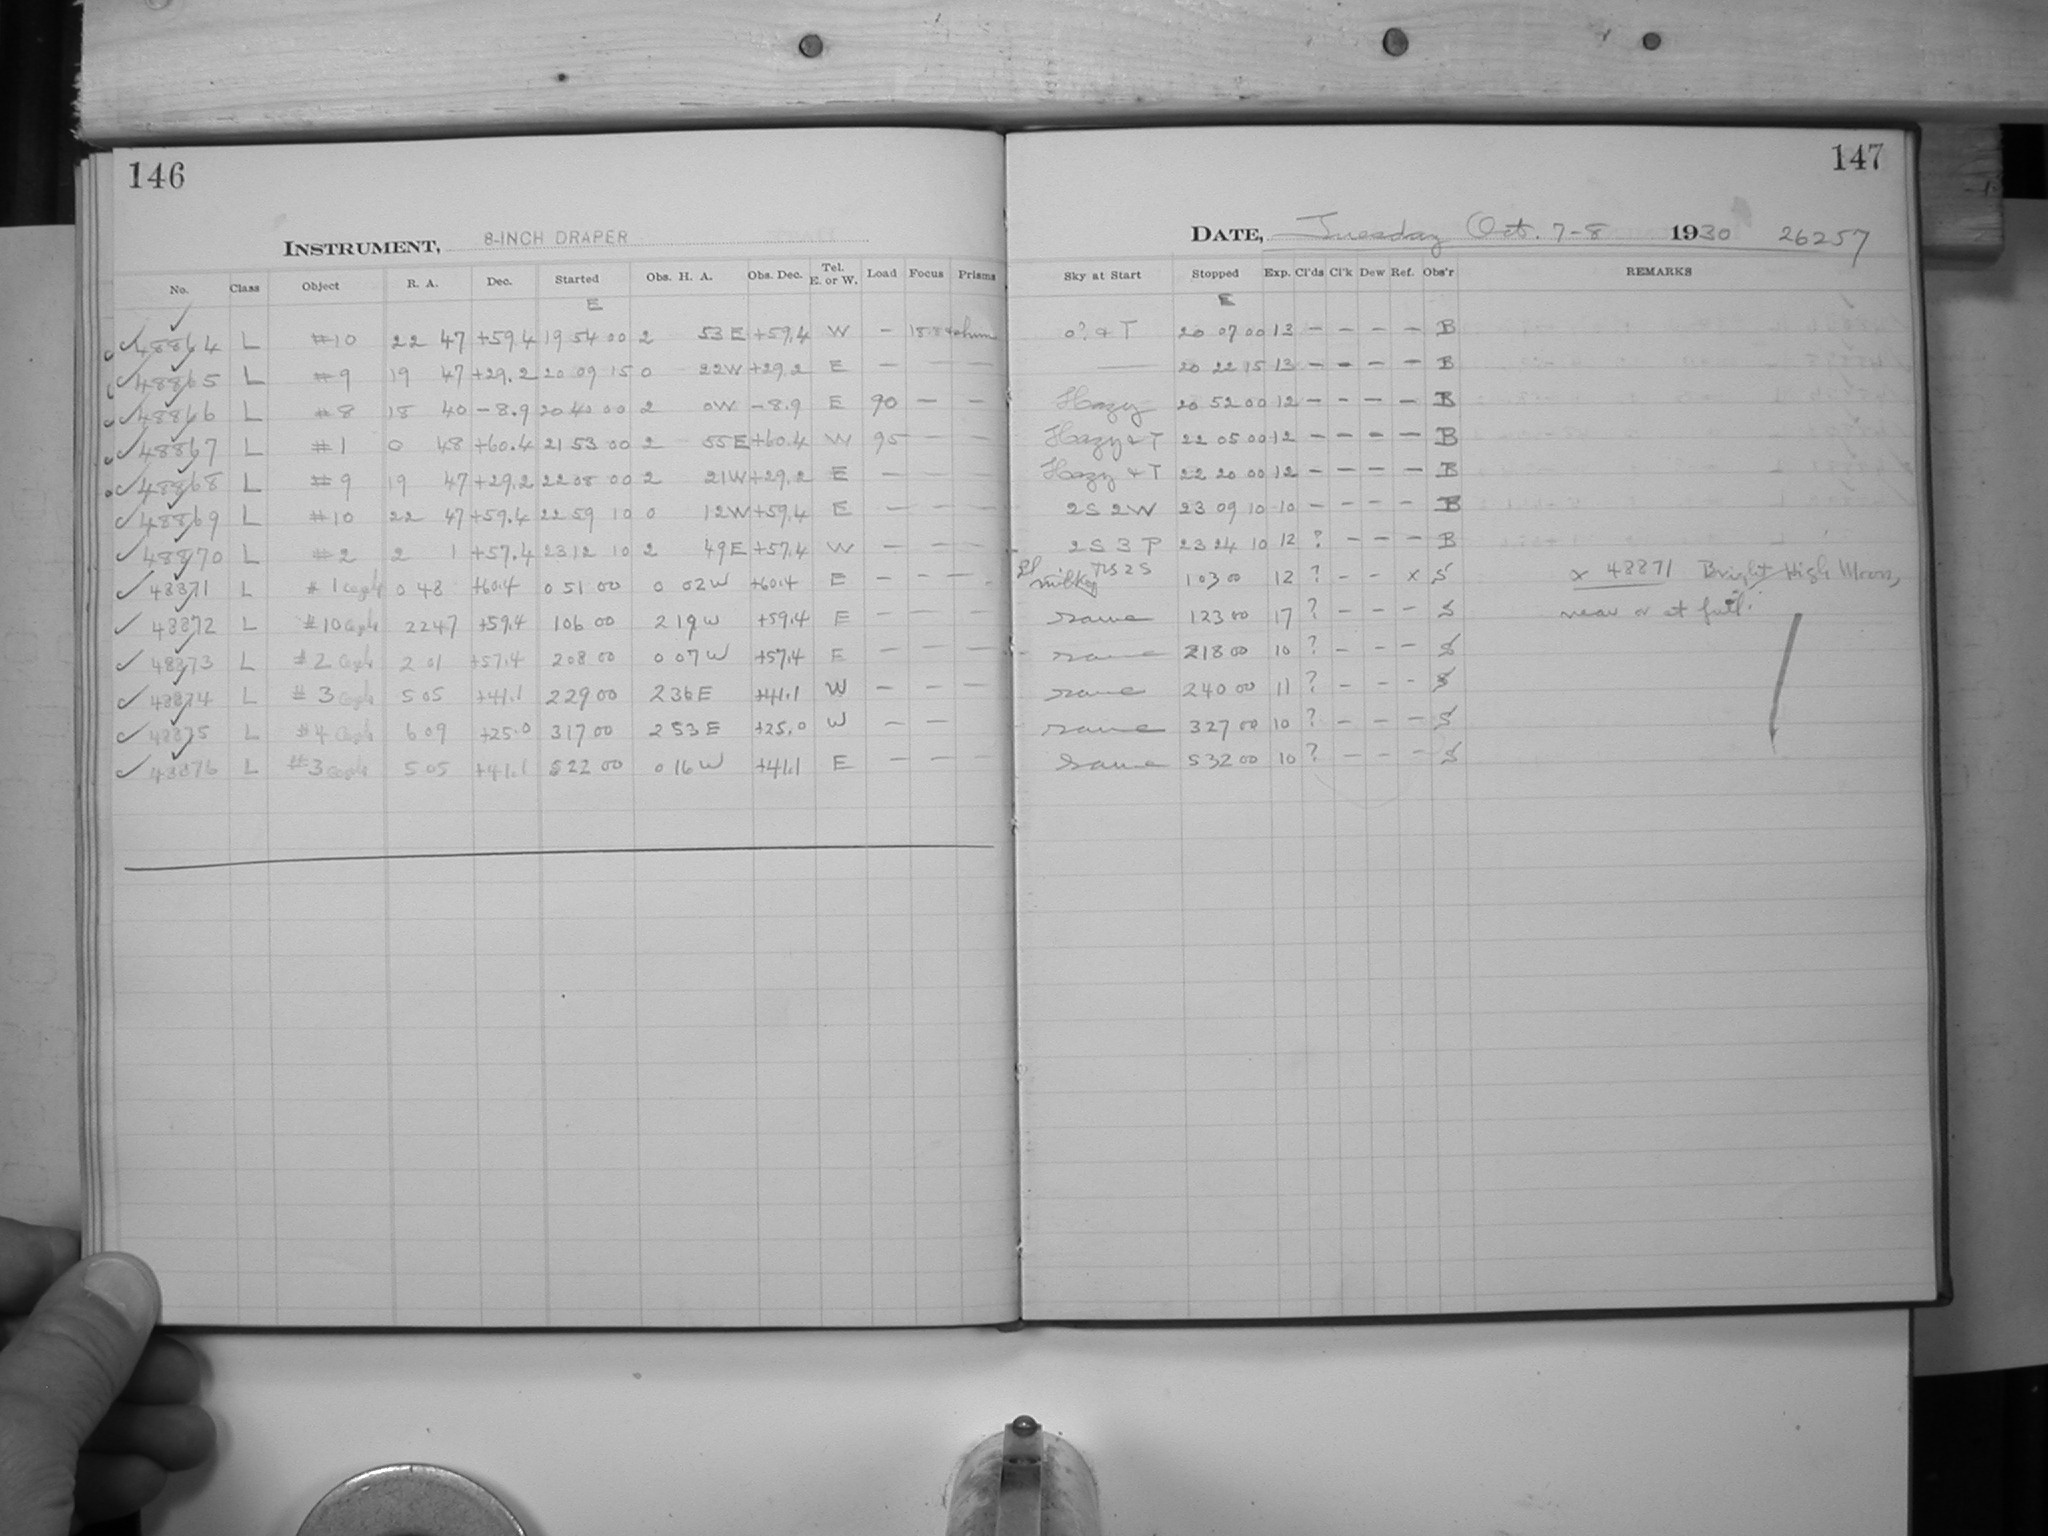 146
INSTRUMENT, 8-INCH DRAPER
No. Class Object R. A. Dec. Started Obs. H. A. Obs. Dec. Tel. E. or W. Load Focus Prisms
E
48864 L #10 22 47 +59.4 19 54 00 2 53 E +59.4 W —
48865 L #9 19 47 +29.2 20 09 15 0 22 W +29.2 E — — —
48866 L #8 18 40 -8.9 20 40 00 2 0 W -8.9 E 90 — —
48867 L #1 0 48 +60.4 21 53 00 2 55 E +60.4 W 95 — —
48868 L #9 19 47 +29.2 22 08 00 2 21 W +29.2 E — — —
48869 L #10 22 47 +59.4 22 59 10 0 12 W +59.4 E — — —
48870 L #2 2 1 +57.4 23 12 10 2 49 E +57.4 W — — —
48871 L #1 0 48 +60.4 0 51 00 0 02 W +60.4 E — — —
48872 L #10 22 47 +59.4 1 06 00 2 19 W +59.4 E — — —
48873 L #2 2 01 +57.4 2 08 00 0 07 W +57.4 E — — —
48874 L #3 5 05 +41.1 2 29 00 2 36 E +41.1 W — — —
48875 L #4 6 09 +25.0 3 17 00 2 53 E +25.0 W — —
48876 L #3 5 05 +41.1 5 22 00 0 16 W +41.1 E — — —
147
DATE, Tuesday Oct. 7-8 1930 26257
Sky at Start Stopped Exp. Cl'ds Cl'k Dew Ref. Obs'r REMARKS
E
0? & T 20 07 00 13 — — — — B
— 20 22 15 13 — — — — B
Hazy 20 52 00 12 — — — — B
Hazy & T 22 05 00 12 — — — — B
Hazy & T 22 20 00 12 — — — — B
2S 2W 23 09 10 10 — — — — B
2S 3P 23 24 10 12 ? — — — B
milky 1 03 00 12 ? — — x S x 48871 Bright High Moon,
same 1 23 00 17 ? — — — S near or at full.
same 2 18 00 10 ? — — — S
same 2 40 00 11 ? — — — S
same 3 27 00 10 ? — — — S
same 5 32 00 10 ? — — — S